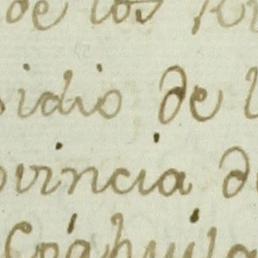 de los
sidio de l
ovincia de
Coahuila